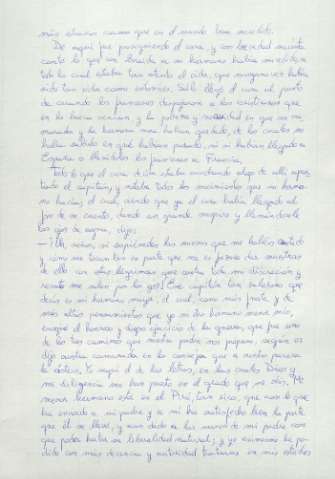 más extraños casos que en el mundo han sucedido.
De aquí fue prosiguiendo el cura, y con brevedad sucinta
contó lo que con Zoraida a su hermano había sucedido, a
todo lo cual estaba tan atento el oidor, que ninguna vez había
sido tan oidor como entonces. Sólo llegó el cura al punto
de cuando los franceses despojaron a los cristianos que
en la barca venían, y la pobreza y necesidad en que su
camarada y la hermosa mora habían quedado, de los cuales no
había sabido en qué habían parado, ni si habían llegado a
España o llevádolos los franceses a Francia.
Todo lo que el cura decía estaba escuchando algo de allí apar
tado el capitán, y notaba todos los movimientos que su herma
no hacía; el cual, viendo que ya el cura había llegado al
fin de su cuento, dando un grande suspiro y llenándosele
los ojos de agua, dijo:
—¡Oh, señor, si supiésedes las nuevas que me habéis contado
y cómo me tocan tan en parte que me es forzoso dar muestras
de ello con estas lágrimas que contra toda mi discreción y
recato me salen por los ojos! Ese capitán tan valeroso que
decís es mi hermano mayor, el cual, como más fuerte y de
más altos pensamientos que yo ni otro hermano menor mío,
escogió el honroso y digno ejercicio de la guerra, que fue uno
de los tres caminos que nuestro padre nos propuso, según os
dijo vuestro camarada en la conseja que a vuestro parecer
le oísteis. Yo seguí el de las letras, en las cuales Dios y
mi diligencia me han puesto en el grado que me veis. Mi
menor hermano está en el Pirú, tan rico, que con lo que
ha enviado a mi padre y a mí ha satisfecho bien la parte
que él se llevó, y aun dado a las manos de mi padre con
que poder hartar su liberalidad natural; y yo asimesmo he po
dido con más decencia y autoridad tratarme en mis estudios